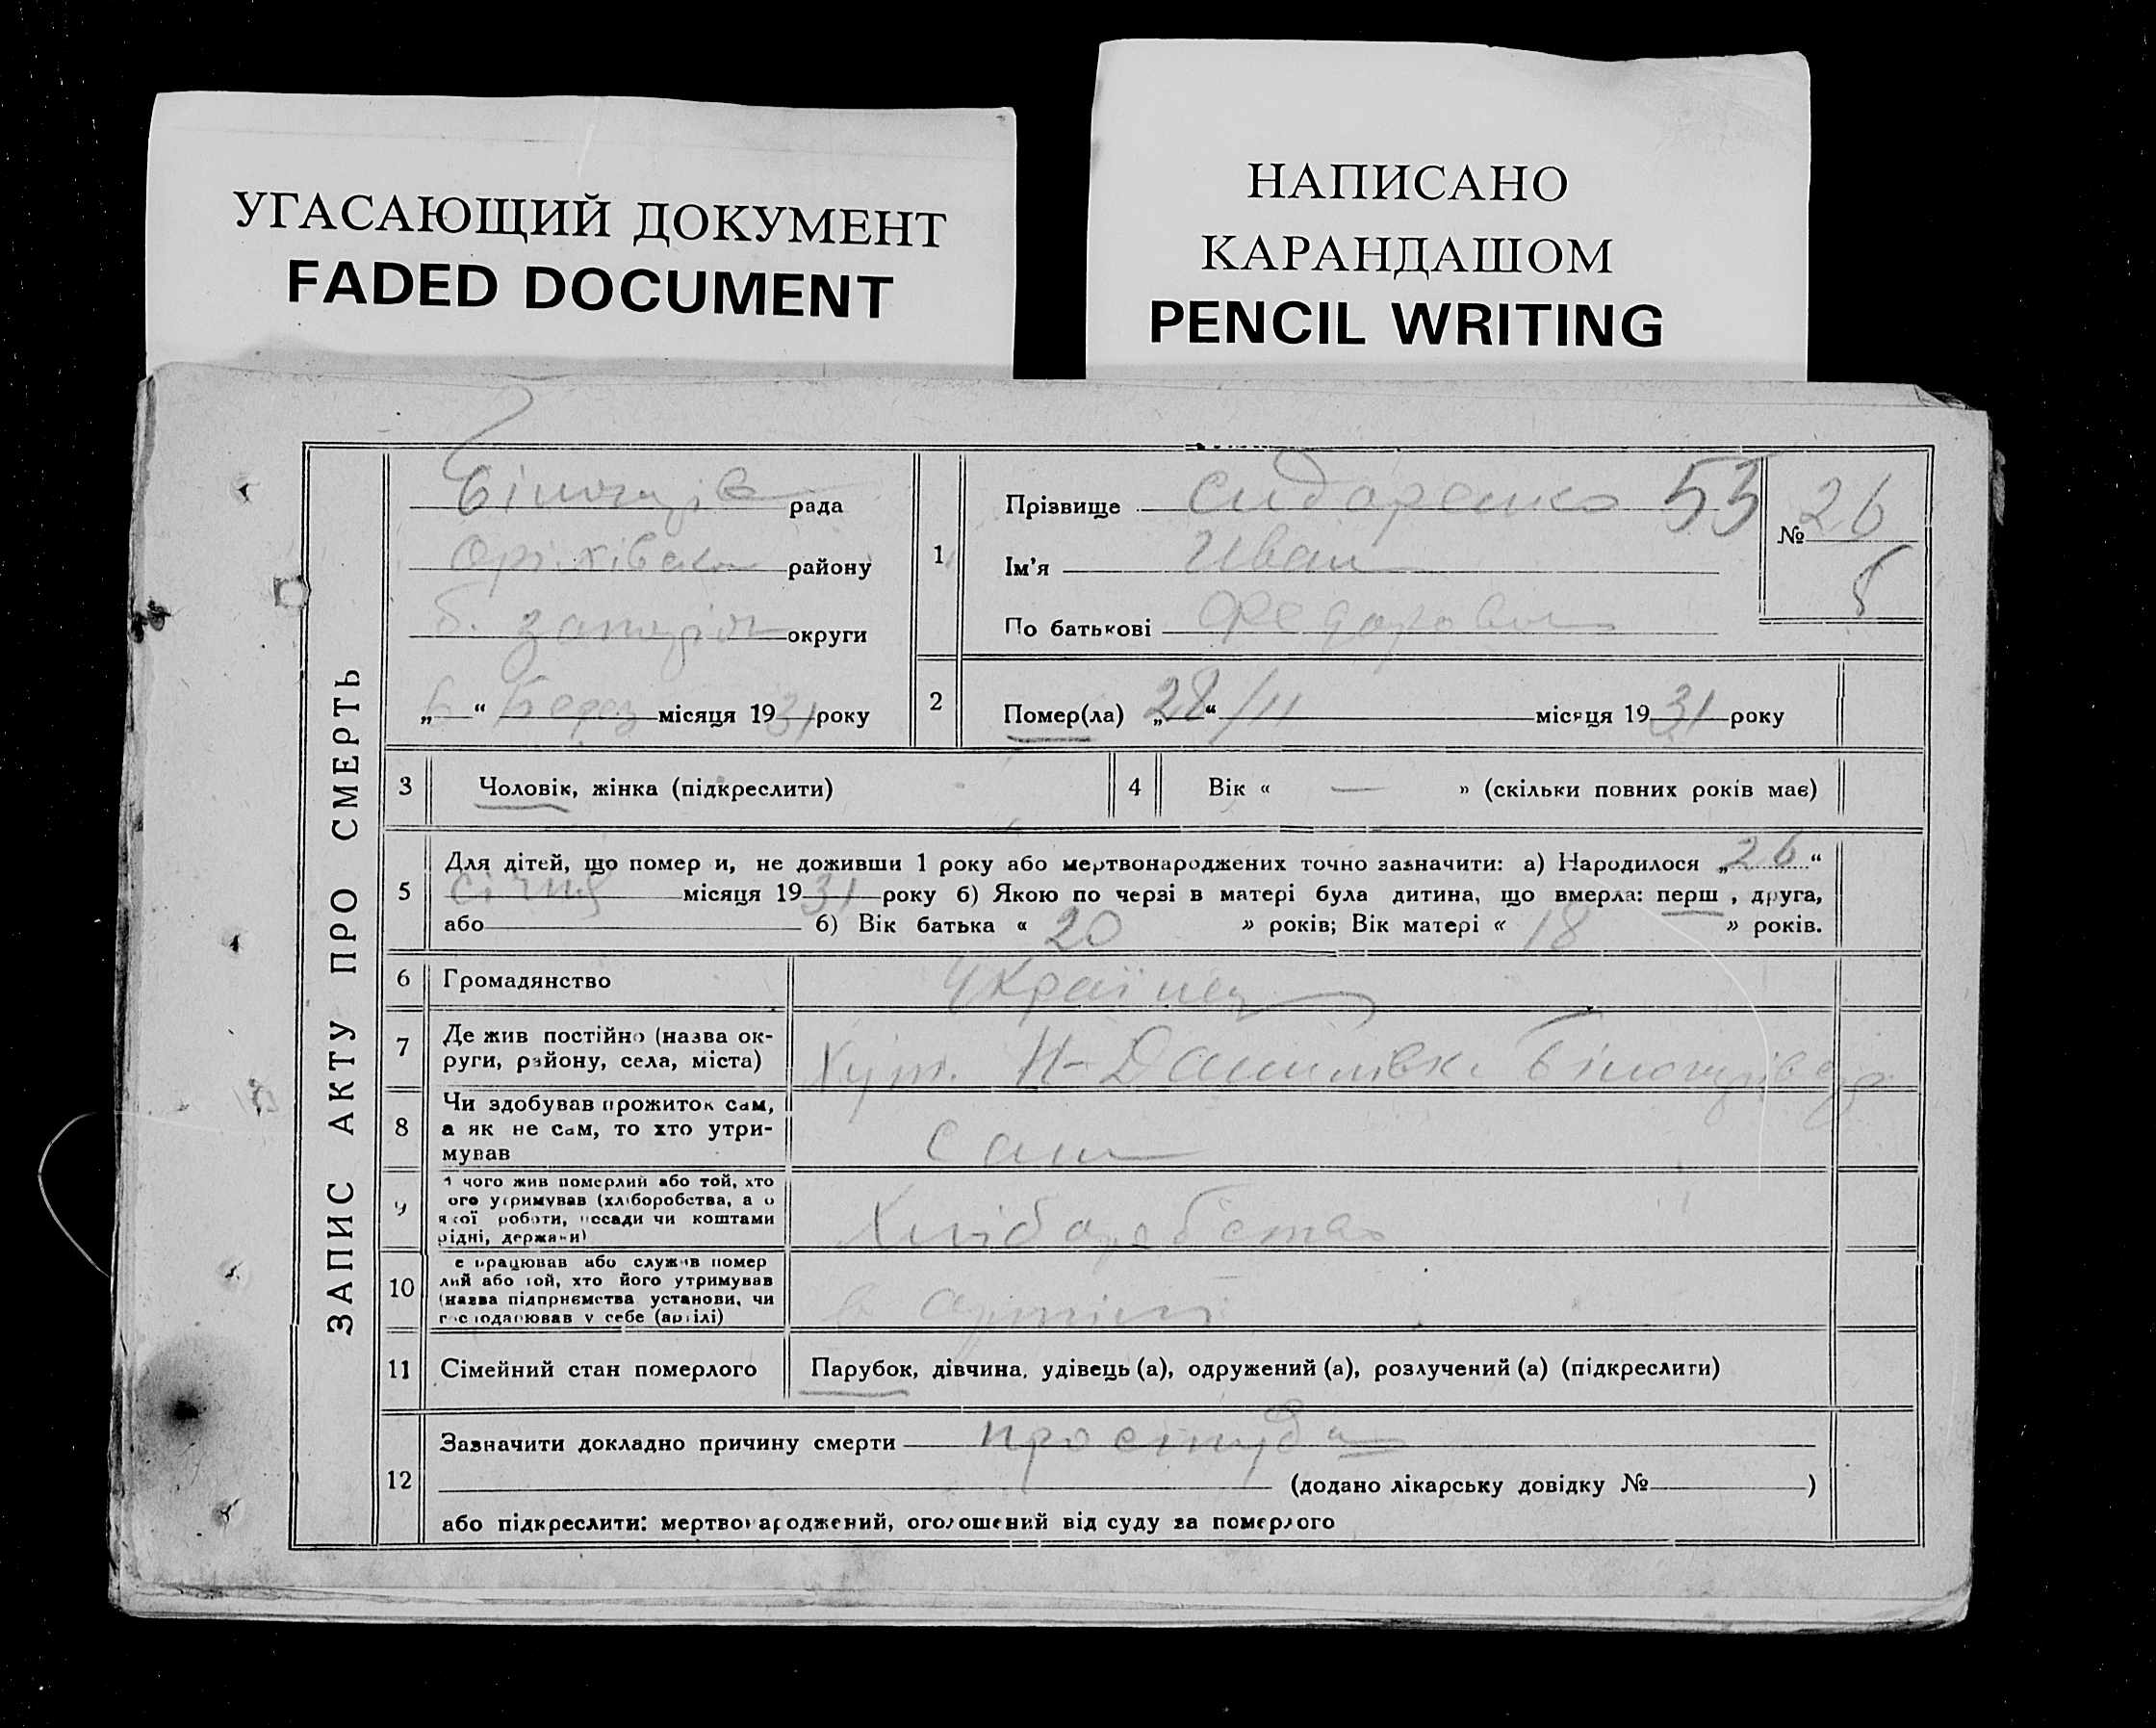 УГАСАЮЩИЙ ДОКУМЕНТ
FADED DOCUMENT
НАПИСАНО
КАРАНДАШОМ
PENCIL WRITING
ЗАПИС АКТУ ПРО СМЕРТЬ
рада
району
округи
„ “ Берез місяця 1931 року
1
Прізвище Сидоренко 55
Ім'я Иван
По батькові Федорович
№ 26
2
Помер(ла) „28“/II місяця 1931 року
3 Чоловік, жінка (підкреслити)
4 Вік « — » (скільки повних років має)
5 Для дітей, що помер и, не доживши 1 року або мертвонароджених точно зазначити: а) Народилося „26“
січня місяця 1931 року б) Якою по черзі в матері була дитина, що вмерла: перш , друга,
або б) Вік батька « 20 » років; Вік матері « 18 » років.
6 Громадянство Українец
7 Де жив постійно (назва ок-
руги, району, села, міста) Хут. Н-Данилівка
8 Чи здобував прожиток сам,
а як не сам, то хто утри-
мував сам
9 чого жив померлий або той, хто
ого утримував (хліборобства, а о
якої роботи, посади чи коштами
рідні, держави) Хліборобство
10 е працював або служив помер
лий або той, хто його утримував
(назва підприємства установи, чи
господарював у себе (артілі) в артілі
11 Сімейний стан померлого Парубок, дівчина, удівець (а), одружений (а), розлучений (а) (підкреслити)
12 Зазначити докладно причину смерти простуда
(додано лікарську довідку № )
або підкреслити: мертвонароджений, оголошений від суду за померлого